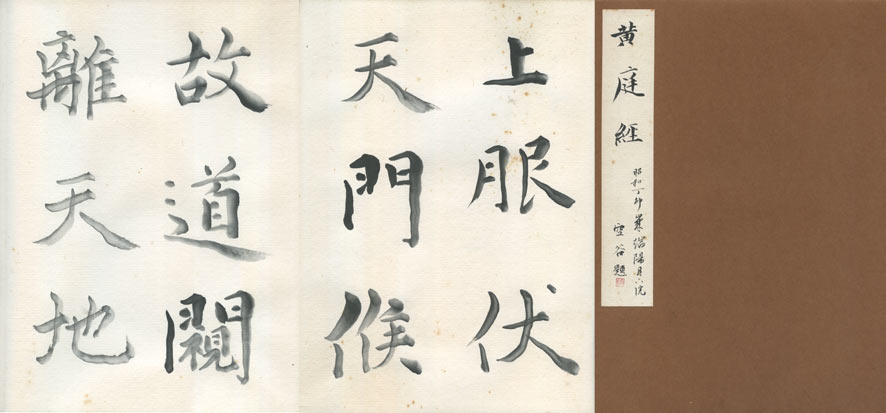 黄庭經
昭和丁卯陽月
雪谷題
上伏
天門候
故道闚
離天地